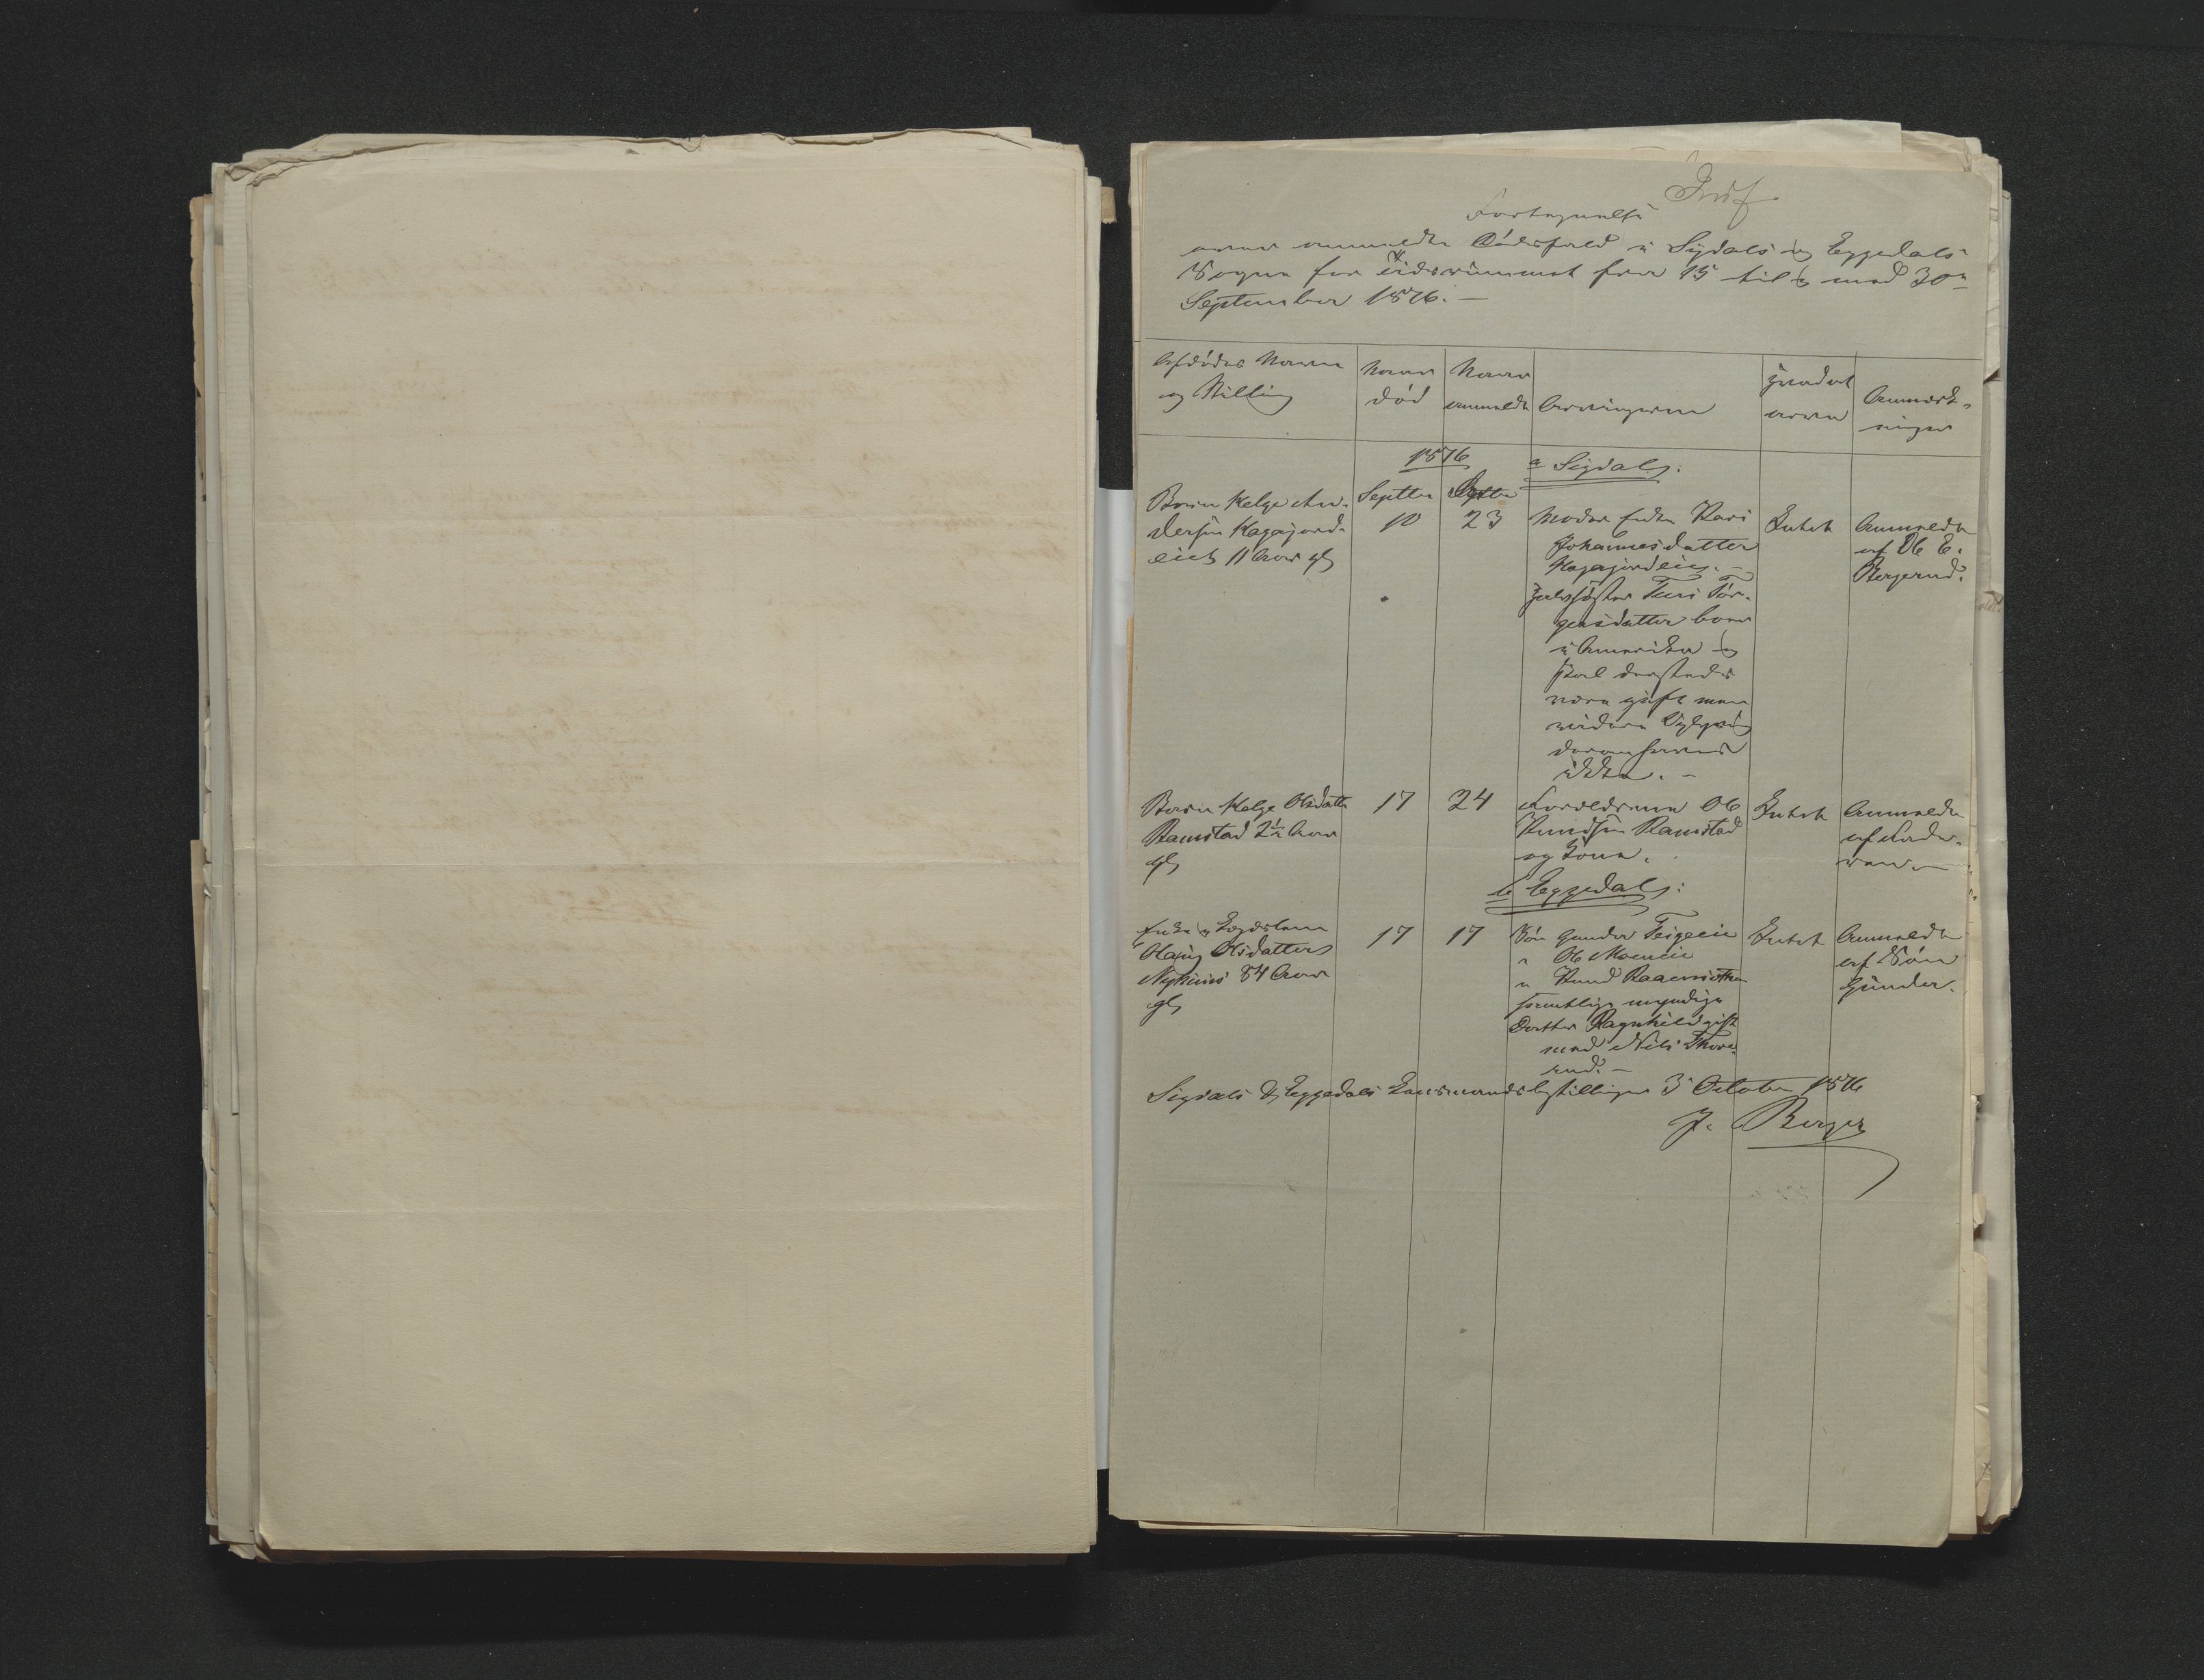 Indf
Fortegnelse
over anmeldte Dödsfald i Sigdals og Eggedals
Sogne for Tidsrummet fra 15 til og med 30te
September 1876. —
Afdödes Navn og Stilling
Naar död
Naar anmeldt
Arvingerne
Indet
Anmærk-
ninger
1876
a Sigdal:
Septbr
Septbr
Barn Helge An-
dersen Hagajord-
eiet 11 Aar gl
10
23
Moder Enke Kari
Johannesdatter
Hagajordeiet. —
Halvsöster Turi Tör-
gersdatter boer
i Amerika og
skal dersteds
være gift men
videre Oplysning
derom haves
ikke. —
Intet
Anmeldt
af Ole E.
Bergerud.
Barn Helge Olsdatter
Ramstad 2½ Aar
gl
17
24
Forældrene Ole
Knudsen Ramstad
og Kone.
Intet
Anmeldt
af Fade-
ren. —
b Eggedal:
Enke og Lægdslem
Olsdatter
84 Aar
gl
17
17
Sön Gunder Teigeeie
" Ole Moeneie
" Knud
samtlige myndige
Datter Ragnhild gift
med Nils Thore-
rud. —
Intet
Anmeldt
af Sön
Gunder.
Sigdals & Eggedals Lensmandsbestilling 3 October 1876
J. Berger